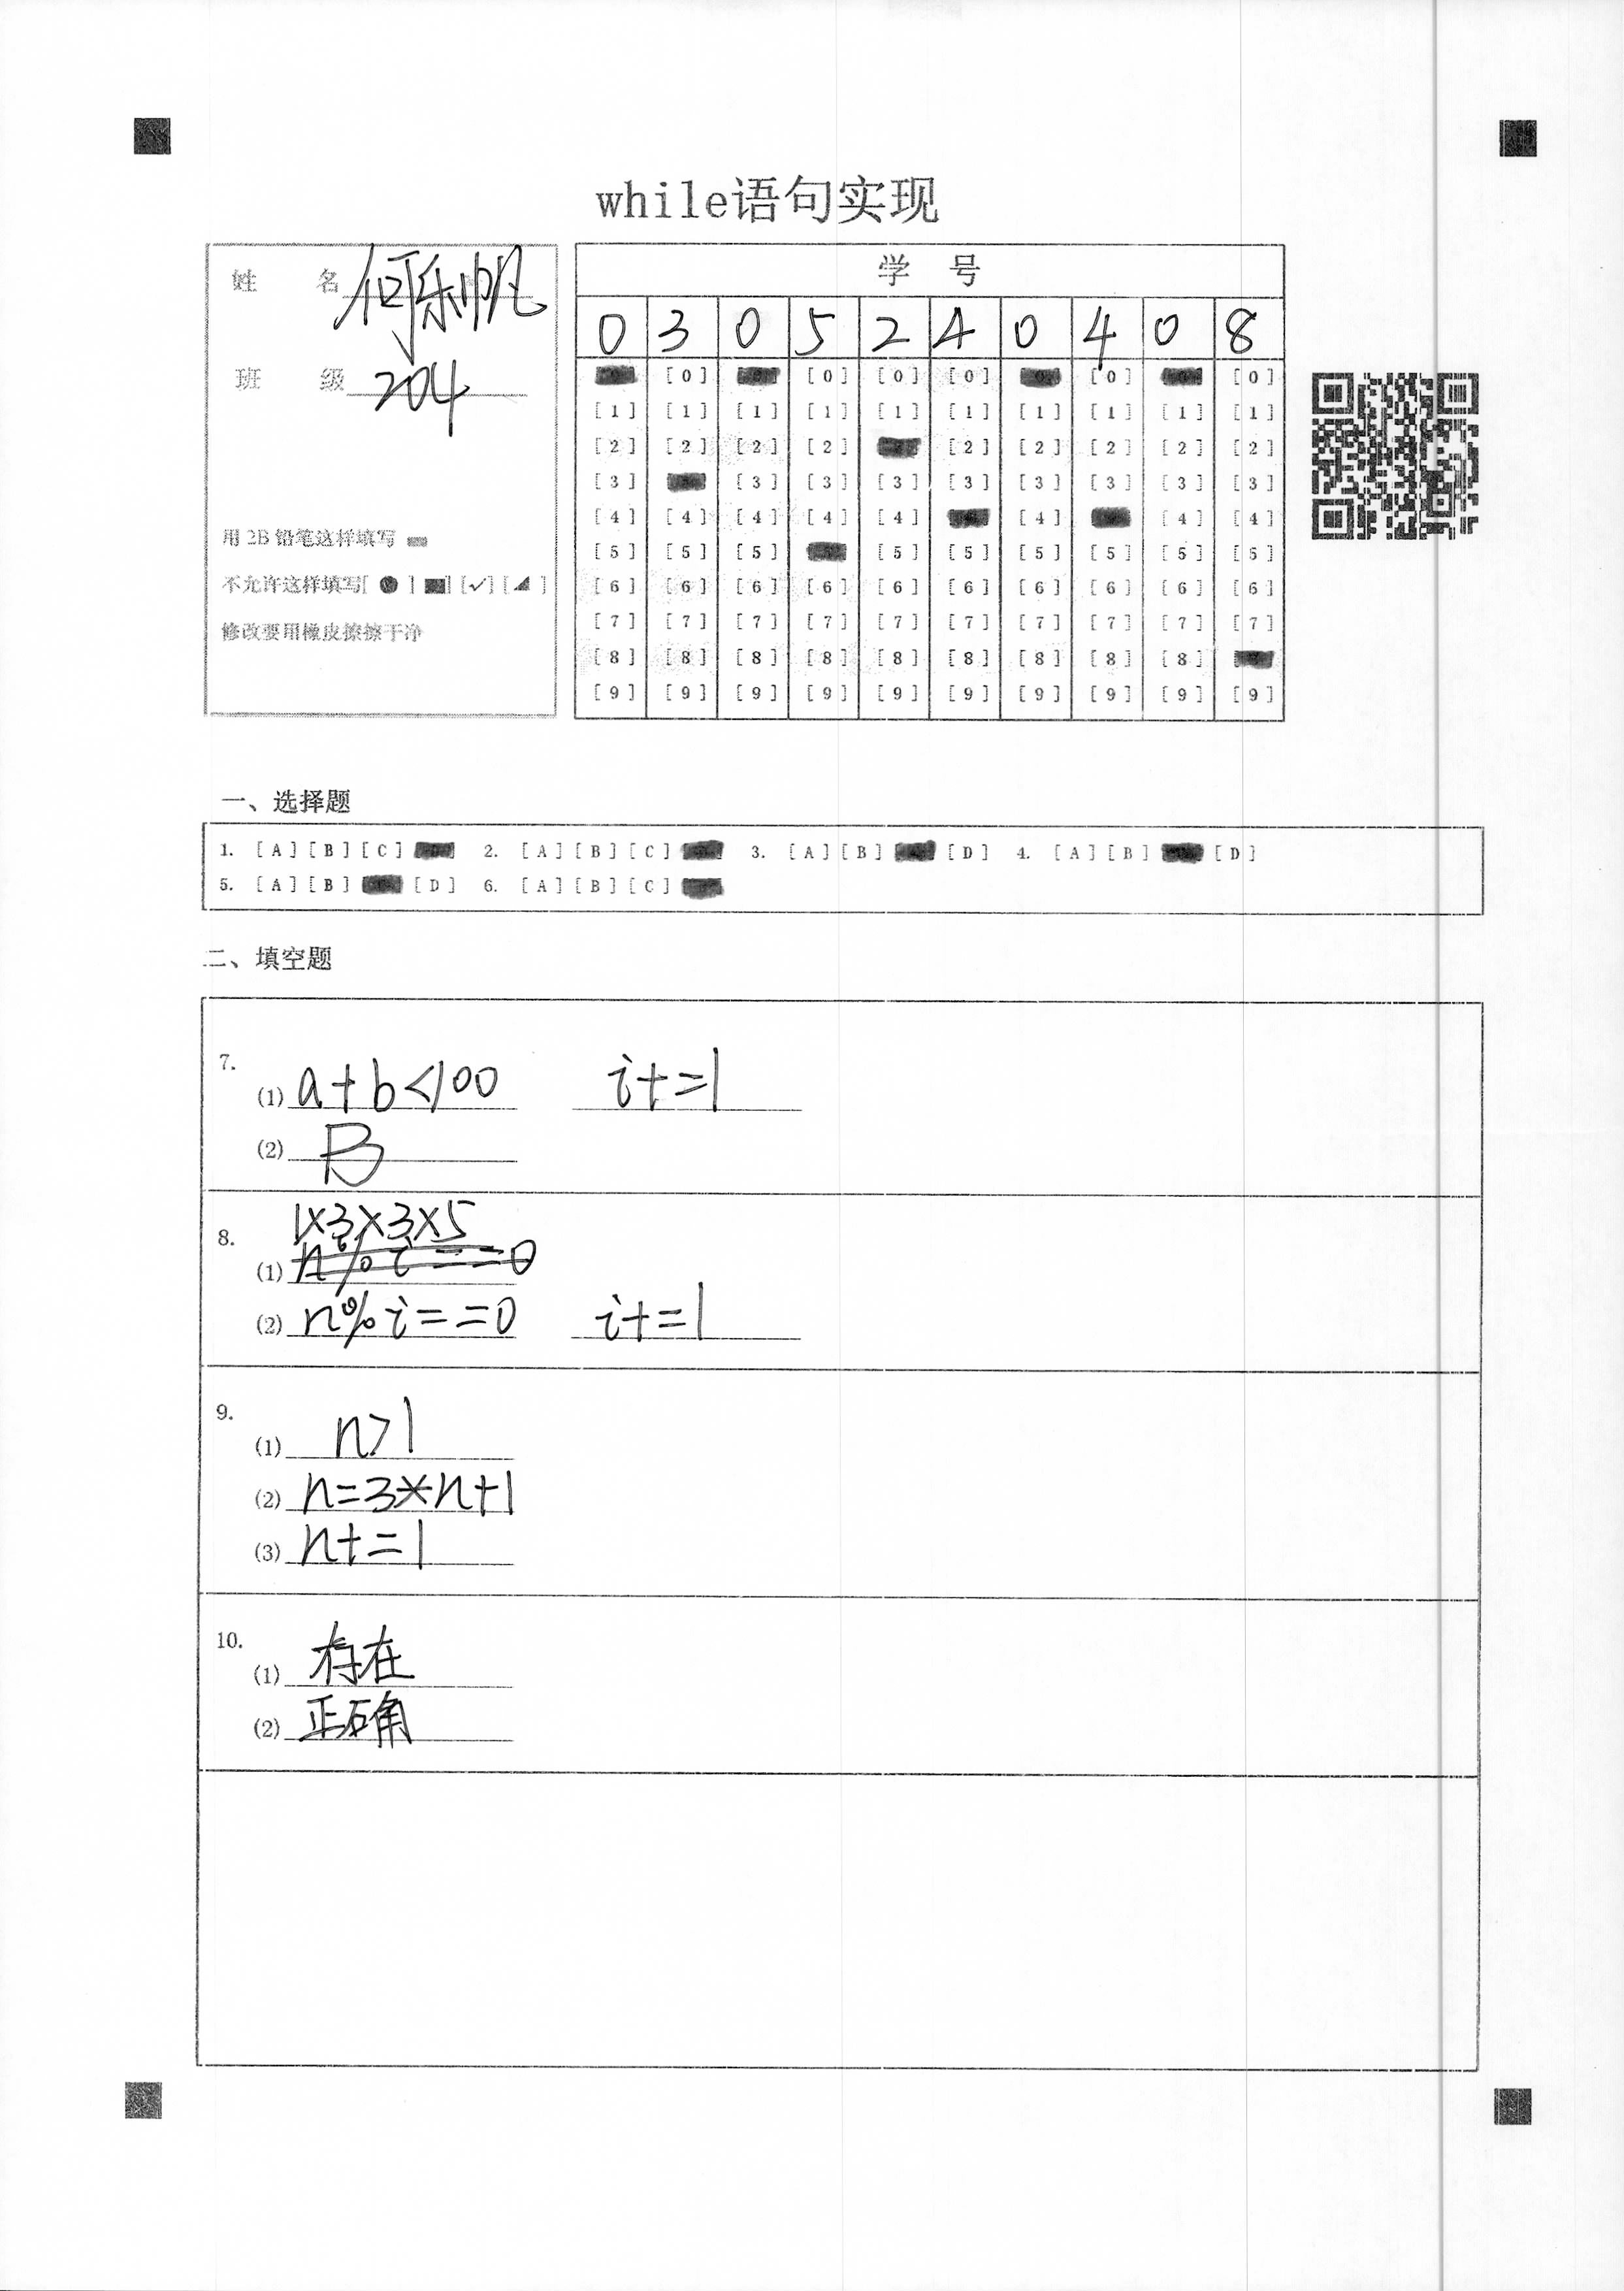 while语句实现
姓 名 何乐帆
班 级 204
用 2B 铅笔这样填写
不允许这样填写[ ● ] [■] [✓] [◢ ]
修改要用橡皮擦擦干净
学 号
0 3 0 5 2 4 0 4 0 8
[0] [0] [0] [0] [0] [0]
[1] [1] [1] [1] [1] [1] [1] [1] [1] [1]
[2] [2] [2] [2] [2] [2] [2] [2] [2]
[3] [3] [3] [3] [3] [3] [3] [3] [3]
[4] [4] [4] [4] [4] [4] [4] [4]
[5] [5] [5] [5] [5] [5] [5] [5] [5]
[6] [6] [6] [6] [6] [6] [6] [6] [6] [6]
[7] [7] [7] [7] [7] [7] [7] [7] [7] [7]
[8] [8] [8] [8] [8] [8] [8] [8] [8]
[9] [9] [9] [9] [9] [9] [9] [9] [9] [9]
一、选择题
1. [A] [B] [C] 2. [A] [B] [C] 3. [A] [B] [D] 4. [A] [B] [D]
5. [A] [B] [D] 6. [A] [B] [C]
二、填空题
7.
(1) a+b<100 i+=1
(2) B
8. 1×3×3×5
(1) n%i==0
(2) n%i==0 i+=1
9.
(1) n>1
(2) n=3*n+1
(3) n+=1
10.
(1) 存在
(2) 正确